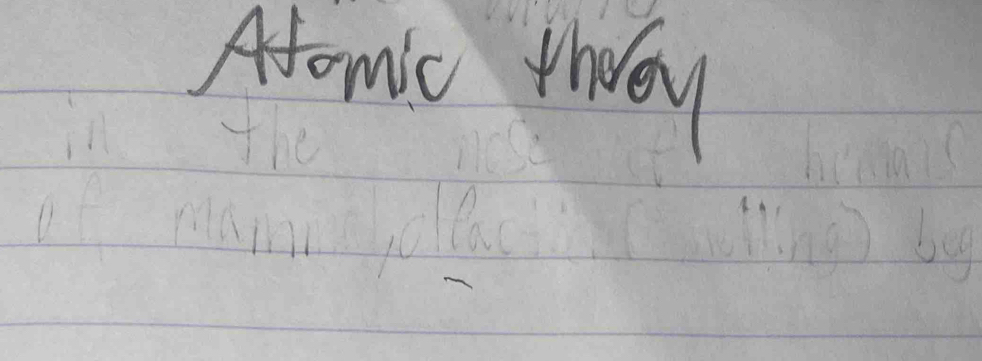 Atomic theroy
in the nose of humans
of mammal, olfaction (smelling) beg